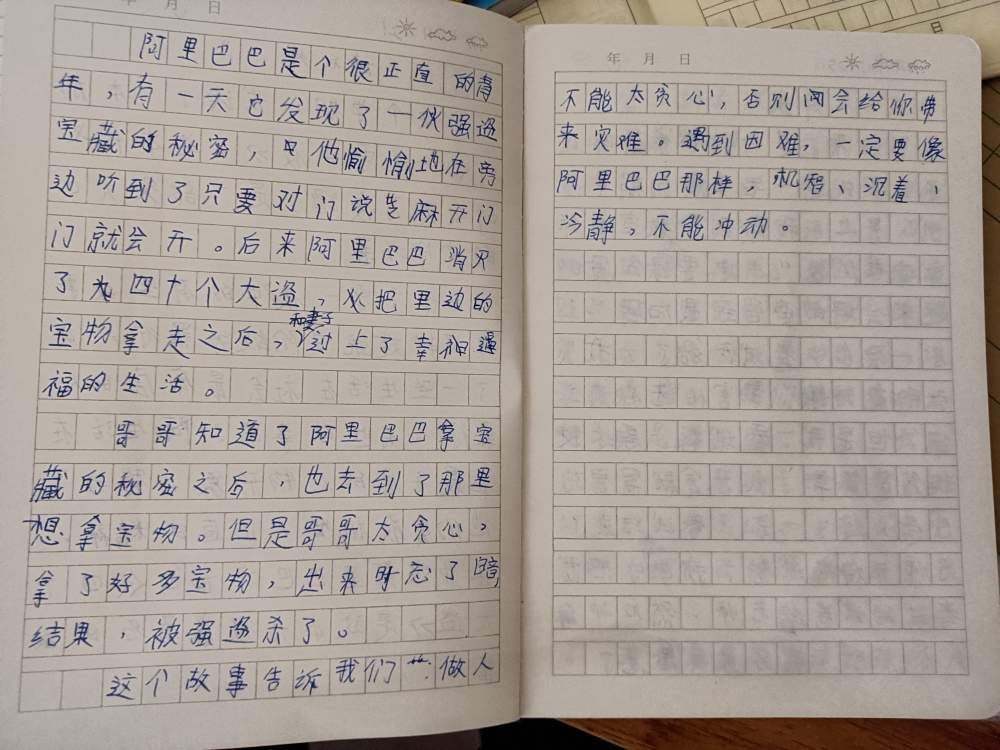 年 月 日
阿里巴巴是个很正直的青
年，有一天它发现了一伙强盗
宝藏的秘密，他偷偷地在旁
边听到了只要对门说芝麻开门
门就会开。后来阿里巴巴消灭
了四十个大盗，把里边的
和妻子
宝物拿走之后，过上了幸福
福的生活。
哥哥知道了阿里巴巴拿宝
藏的秘密之后，也去到了那里
想拿宝物。但是哥哥太贪心，
拿了好多宝物，出来时忘了暗，
结果，被强盗杀了。
这个故事告诉我们做人
年 月 日
不能太贪心，否则会给你带
来灾难。遇到困难，一定要像
阿里巴巴那样，机智、沉着、
冷静，不能冲动。